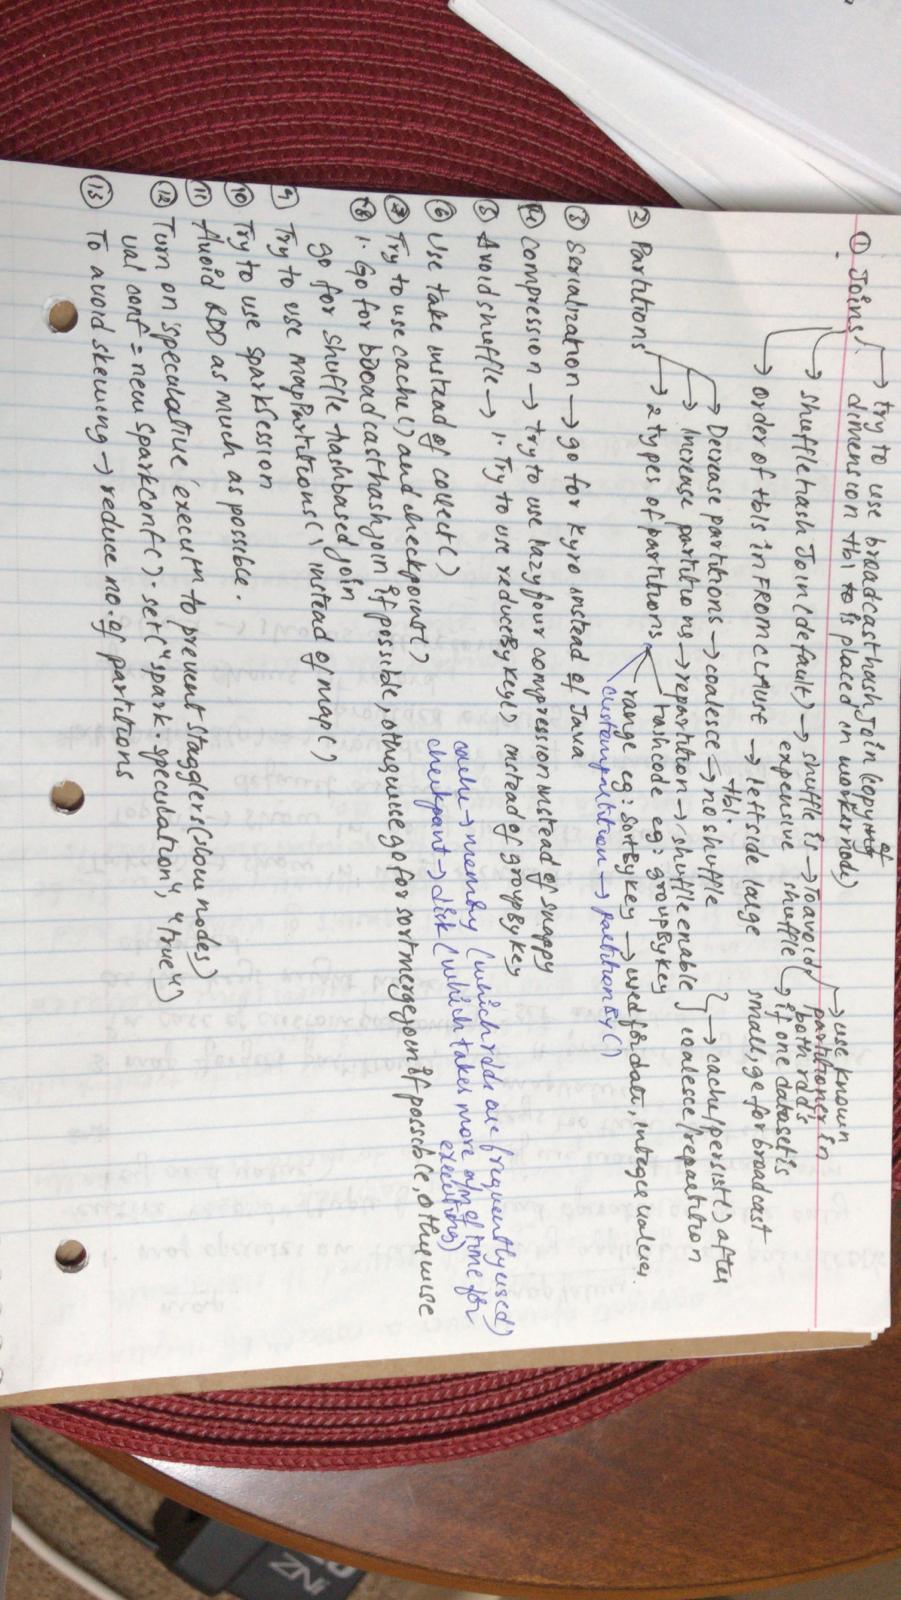 ① Joins → try to use broadcast hash Join (copying of
dimension tbl is placed in worker node)
→ shuffle hash Join (default) → shuffle is → To avoid → use known
expensive shuffle partitioner in
both rdd's
→ if one dataset is
small, go for broadcast
→ order of tbls in FROM clause → left side large
tbl.
② Partitions → Decrease partitions → coalesce → no shuffle
→ Increase partitions → repartition → shuffle enable } → cache/persist() after
coalesce/repartition
→ 2 types of partitions → hashcode eg: groupBykey
→ range eg: sortBykey → used for date, integer values.
custom partition → partitionBy()
③ Serialization → go for kyro instead of Java
④ compression → try to use lazy four compression instead of snappy
⑤ Avoid sheffle → 1. Try to use reduceBykey() instead of groupBykey
⑥ Use take instead of collect()
⑦ Try to use cache() and checkpoint()
cache → memory (which rdds are frequently used)
checkpoint → disk (which takes more amt of time for
executing)
⑧ 1. Go for broadcast hash join if possible, otherwise go for sort merge join if possible, otherwise
go for shuffle hashbased join
9 Try to use mapPartitions() instead of map()
⑩ Try to use sparkSession
⑪ Avoid RDD as much as possible.
⑫ Turn on 'speculative' executn to prevent stagglers (slow nodes)
val conf = new SparkConf().set("spark.speculation", "true")
⑬ To avoid skewing → reduce no. of partitions
ZNI